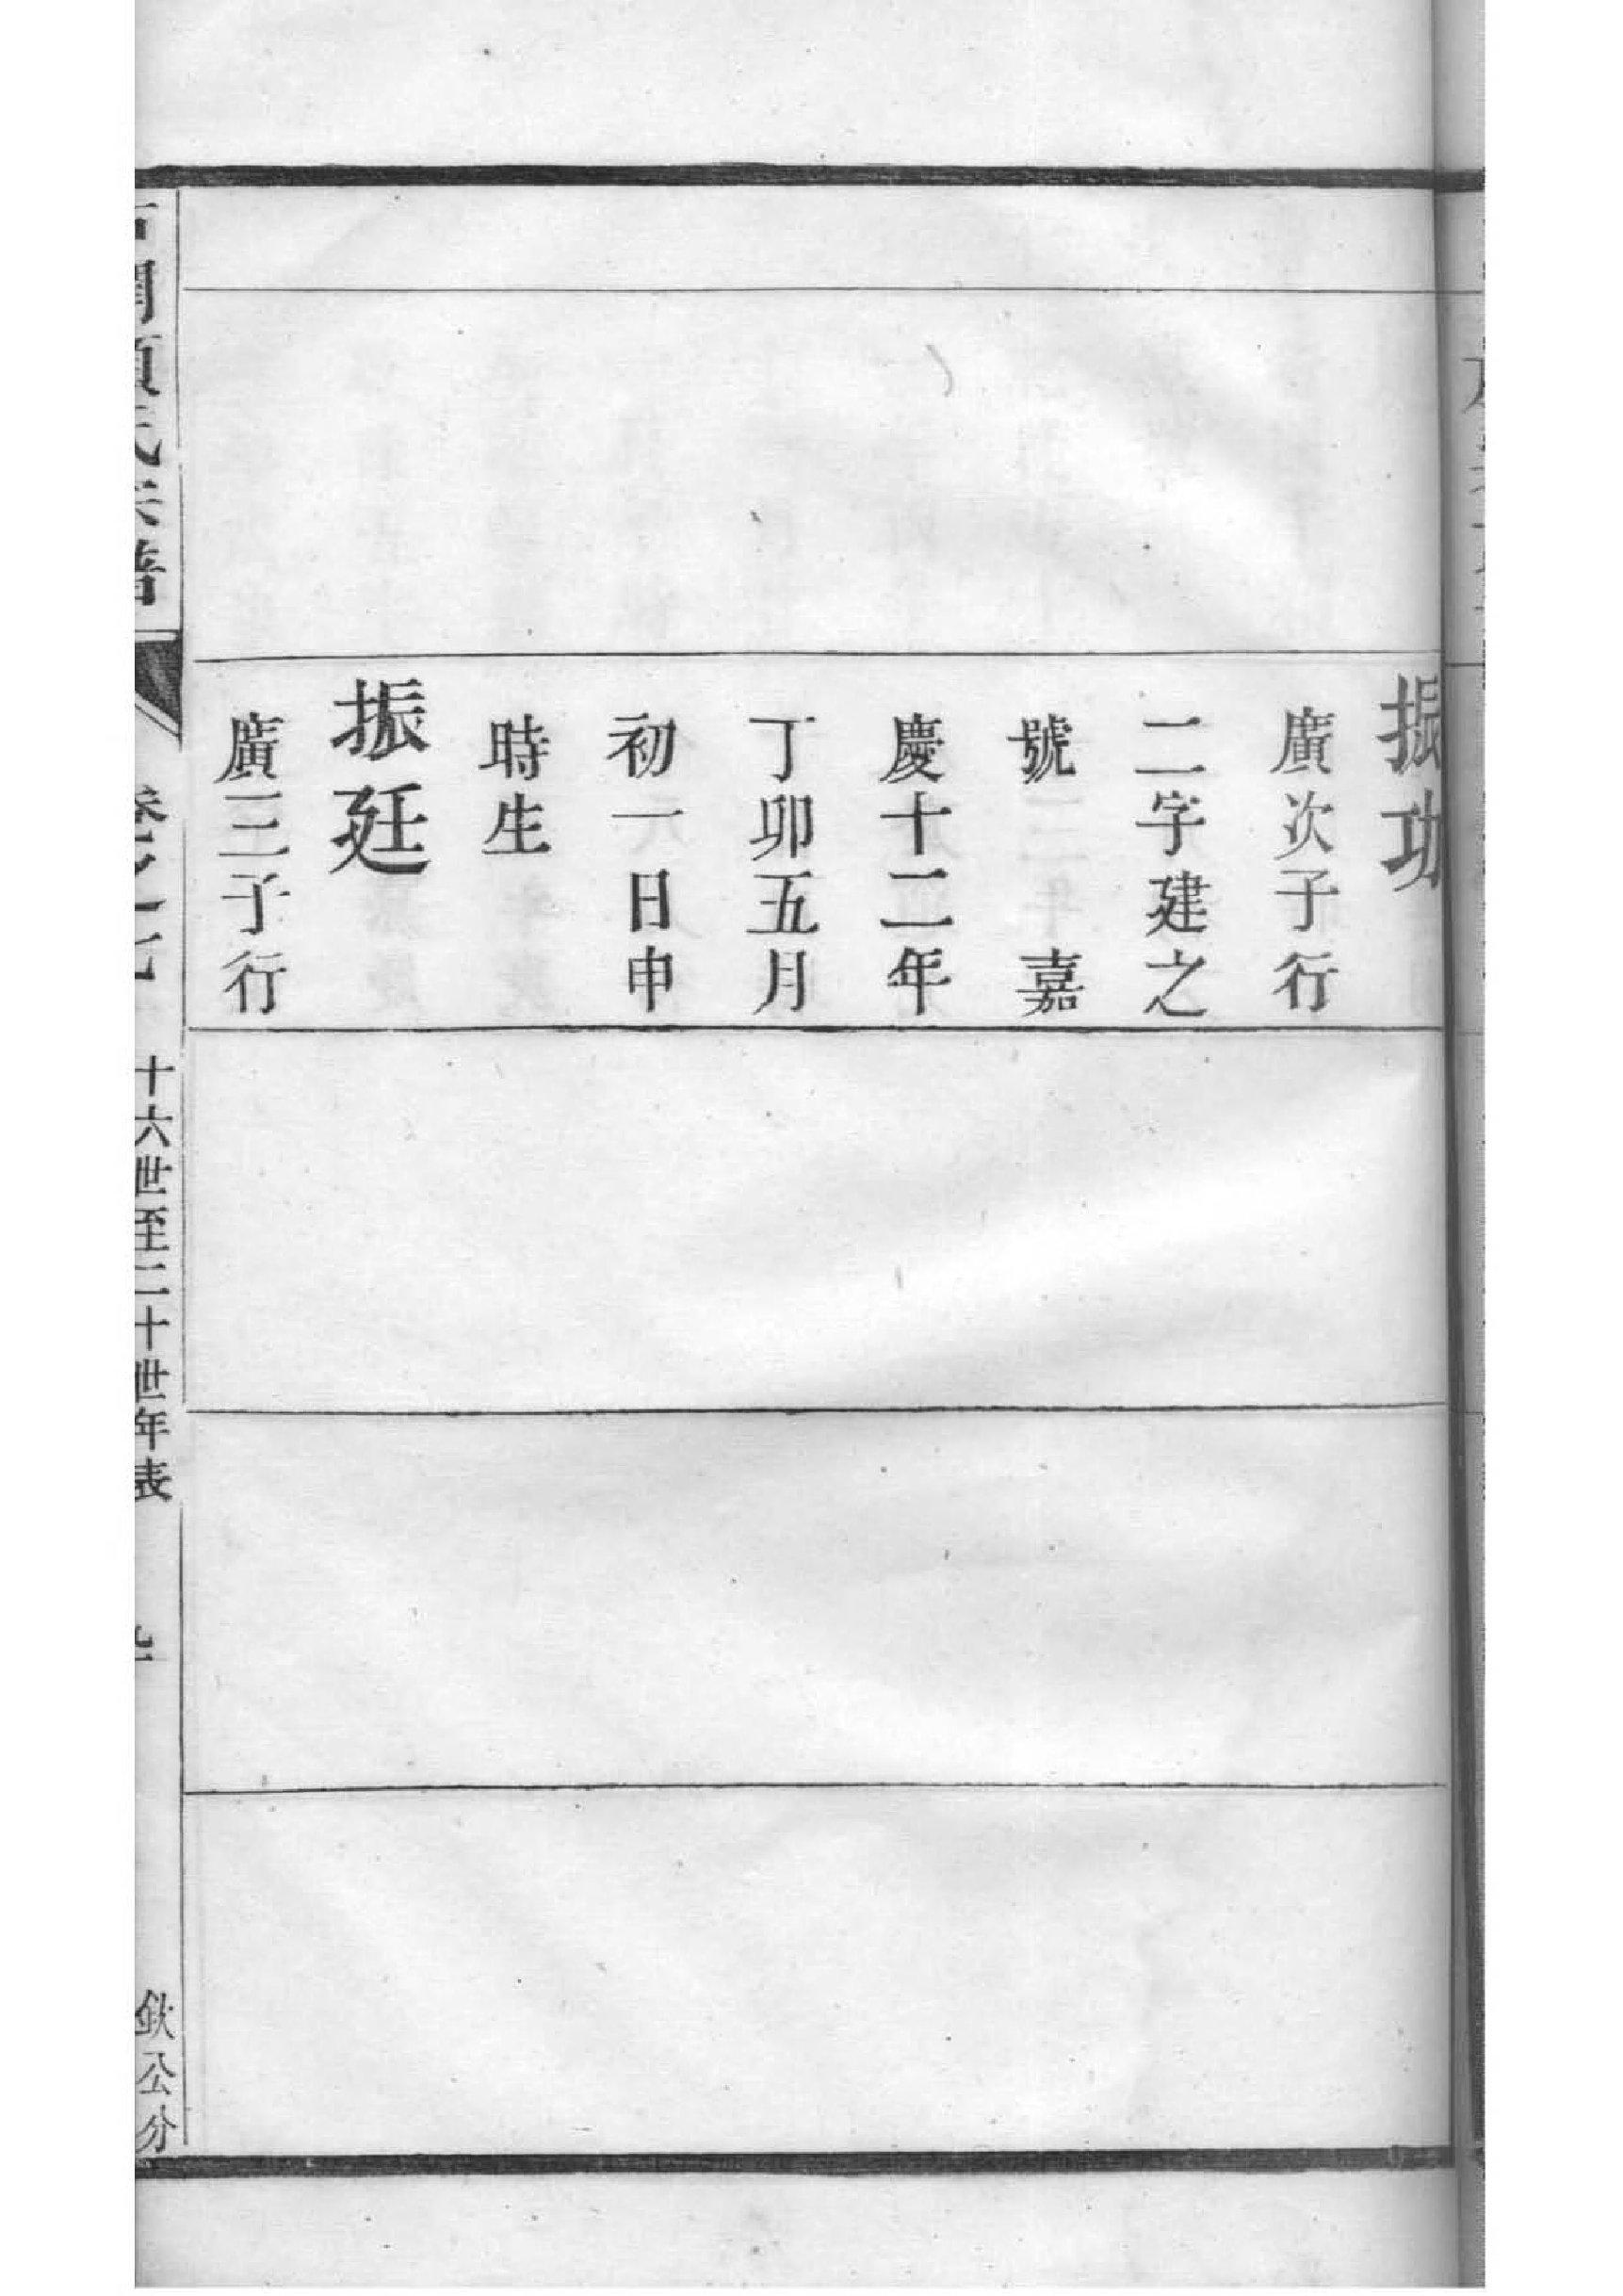 振功
廣次子行
二字建之
號　嘉
慶十二年
丁卯五月
初一日申
時生
振廷
廣三子行
氏宗譜
卷之十七
十六世至二十世年表
九
欽公分